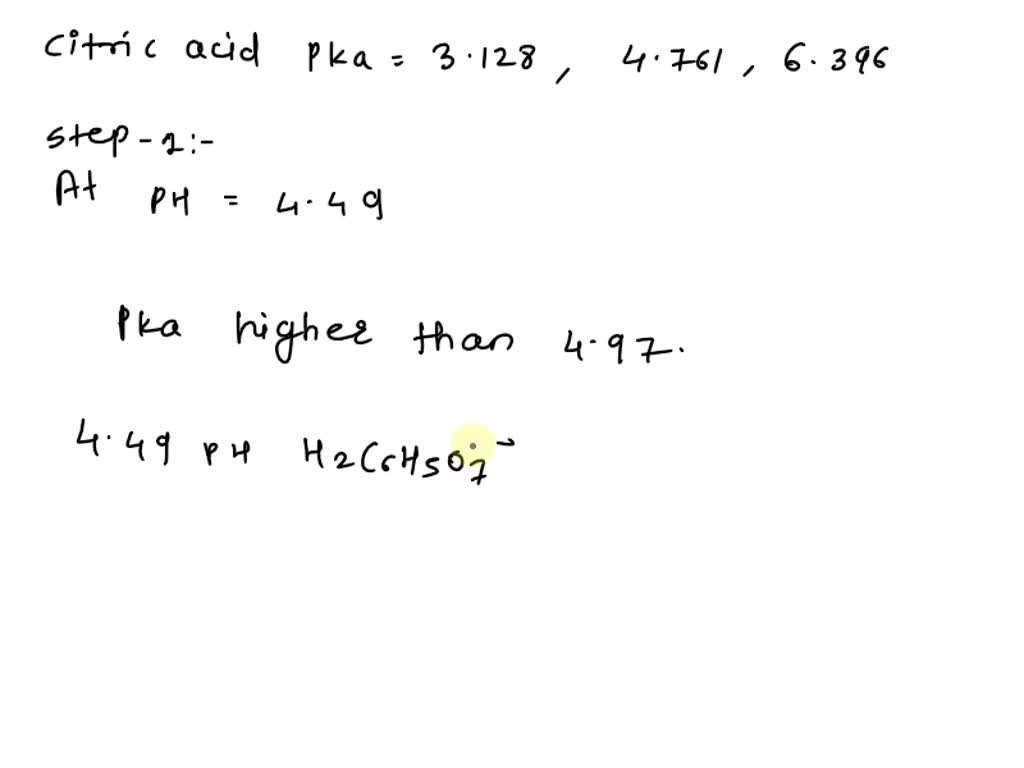 Citric acid Pka = 3.128, 4.761, 6.396
Step-1:-
At PH = 4.49
Pka higher than 4.97.
4.49 PH H2C6H5O7-